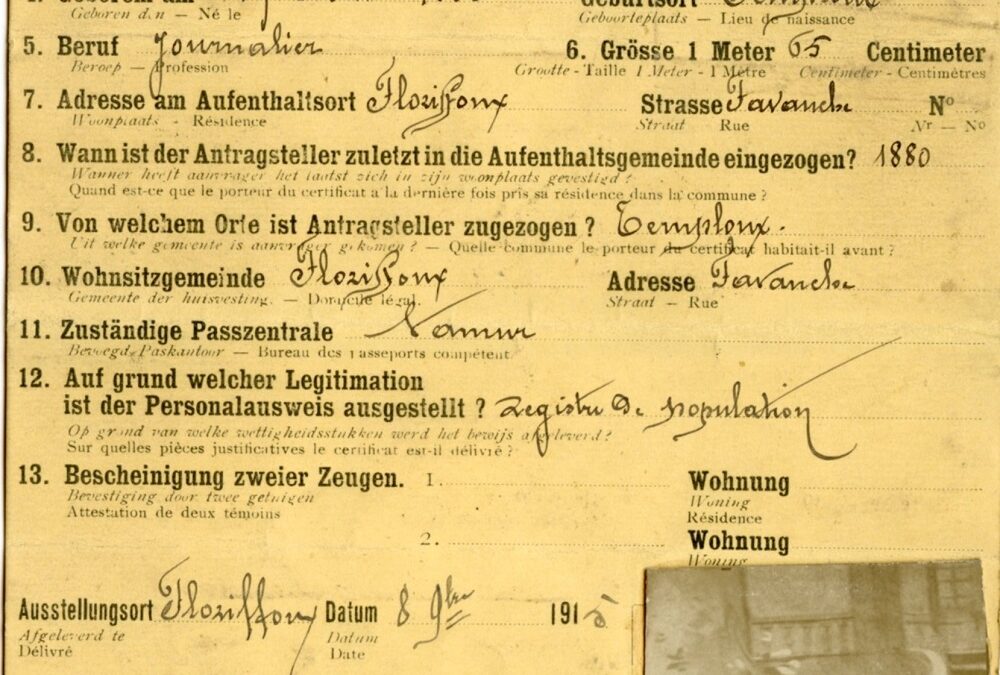 4. Geboren am Geburtsort Temploux
Geboren den — Né le Geboorteplaats — Lieu de naissance
5. Beruf Journalier 6. Grösse 1 Meter 65 Centimeter
Beroep — Profession Grootte - Taille 1 Meter - 1 Mètre Centimeter - Centimètres
7. Adresse am Aufenthaltsort Floriffoux Strasse Tavanche Nº
Woonplaats - Résidence Straat Rue Nr — Nº
8. Wann ist der Antragsteller zuletzt in die Aufenthaltsgemeinde eingezogen? 1880
Wanner heeft aanvrager het laatst zich in zijn woonplaats gevestigd ?
Quand est-ce que le porteur du certificat a la dernière fois pris sa résidence dans la commune ?
9. Von welchem Orte ist Antragsteller zugezogen ? Temploux.
Uit welke gemeente is aanvrager gekomen ? — Quelle commune le porteur du certificat habitait-il avant ?
10. Wohnsitzgemeinde Floriffoux Adresse Tavanche
Gemeente der huisvesting. — Domicile légal. Straat — Rue
11. Zuständige Passzentrale Namur
Bevoegd Paskantoor — Bureau des passeports compétent
12. Auf grund welcher Legitimation
ist der Personalausweis ausgestellt ? Registre de population
Op grond van welke wettigheidsstukken werd het bewijs afgeleverd ?
Sur quelles pièces justificatives le certificat est-il délivré ?
13. Bescheinigung zweier Zeugen. 1. Wohnung
Bevestiging door twee getuigen Woning
Attestation de deux témoins Résidence
2. Wohnung
Woning
Ausstellungsort Floriffoux Datum 8 9bre 1915
Afgeleverd te Datum
Délivré Date